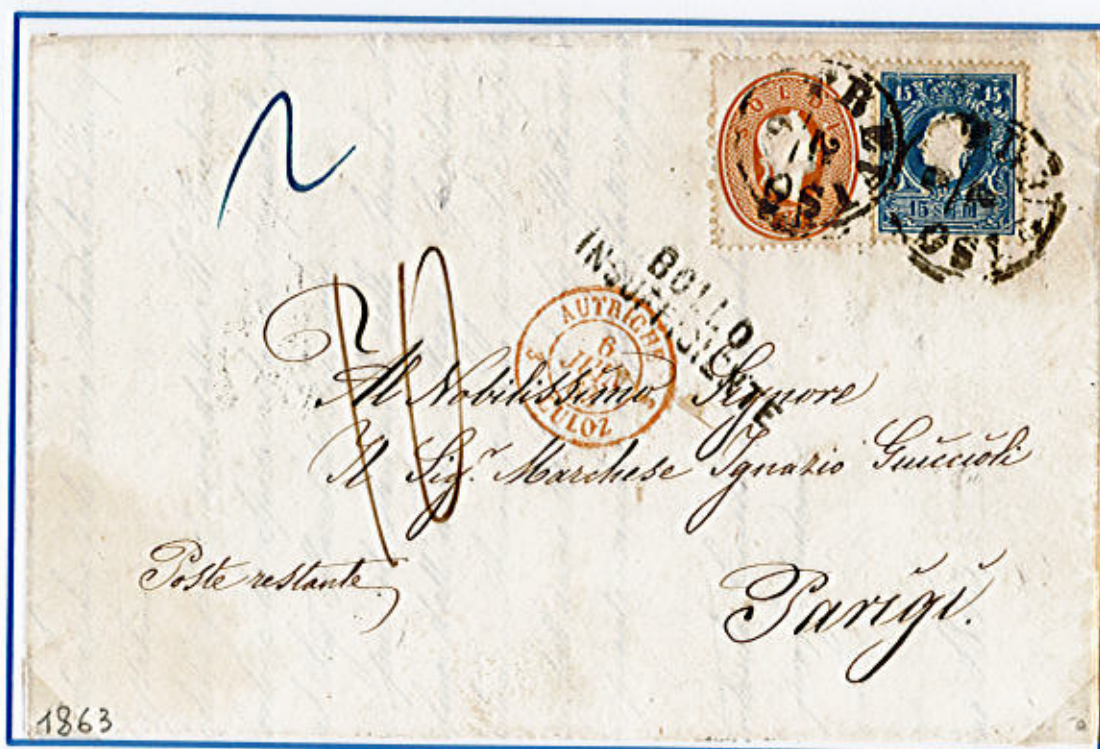 SOLDI
15 15
15 SOLDI
2
BOLLO
INSUFFICIENTE
AUTRICHE
6
JUIN
CULOZ
10
Al Nobilissimo Signore
Il Sig.r Marchese Ignazio Guiccioli
Poste restante
Parigi.
1863